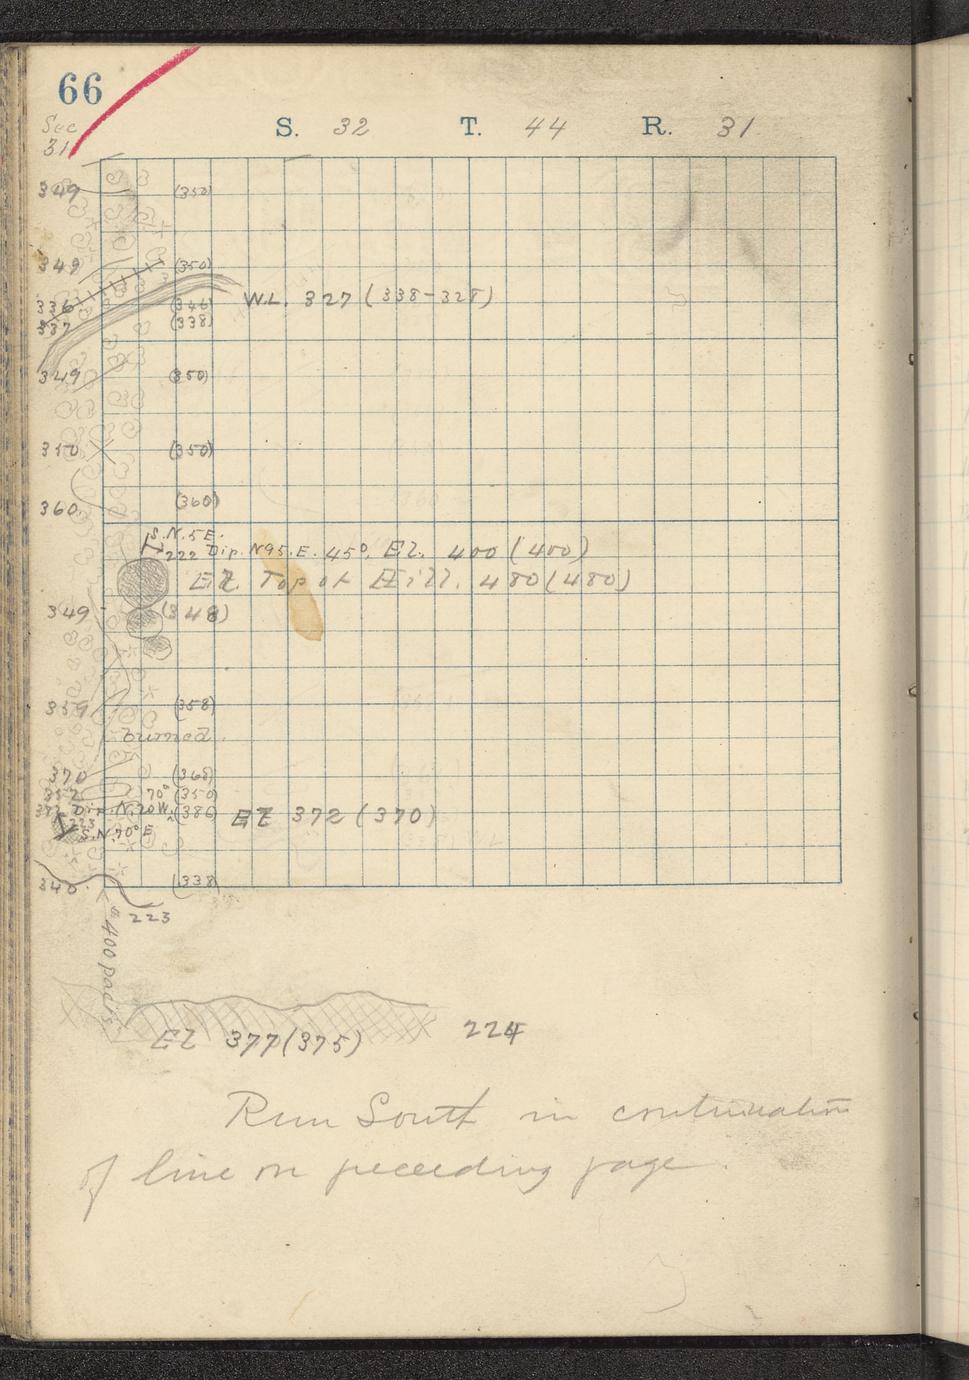 66
Sec
31
S. 32 T. 44 R. 31
349 (350)
349 (350)
336 (346) W.L. 327 (338-328)
337 (338)
349 (350)
350 (350)
360 (360)
S.N.5E.
222 Dip. N95.E. 45°. El. 400 (400)
El. Top of Hill. 480 (480)
349 (348)
359 (358)
burned.
370 (368)
357 70° (350)
372 Dip. N.20W. (386) El 372 (370)
223
S.N.70°E
340 (338)
223
400 paces
El 377 (375) 224
Run South in continuation
of line on preceeding page.